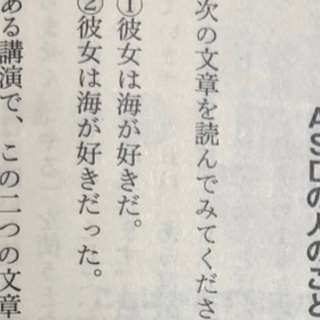 ASDの人のこと
次の文章を読んでみてくださ
①彼女は海が好きだ。
②彼女は海が好きだった。
ある講演で、この二つの文章